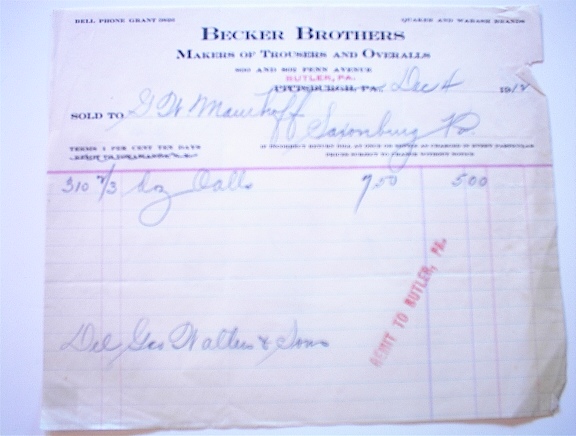 BELL PHONE GRANT QUAKER AND WABASH BRANDS
BECKER BROTHERS
MAKERS OF TROUSERS AND OVERALLS
800 AND 802 PENN AVENUE
BUTLER, PA.
PITTSBURGH, PA. Dec 4 191
SOLD TO G W Maurhoff
Saxonburg Pa
TERMS 1 PER CENT TEN DAYS
IF INCORRECT RETURN BILL AT ONCE OR GOODS AS CHARGED IN EVERY PARTICULAR
PRICES SUBJECT TO CHANGE WITHOUT NOTICE
310 2/3 dz Oalls 7 50 5 00
REMIT TO BUTLER, PA.
Del Geo Walters & Sons